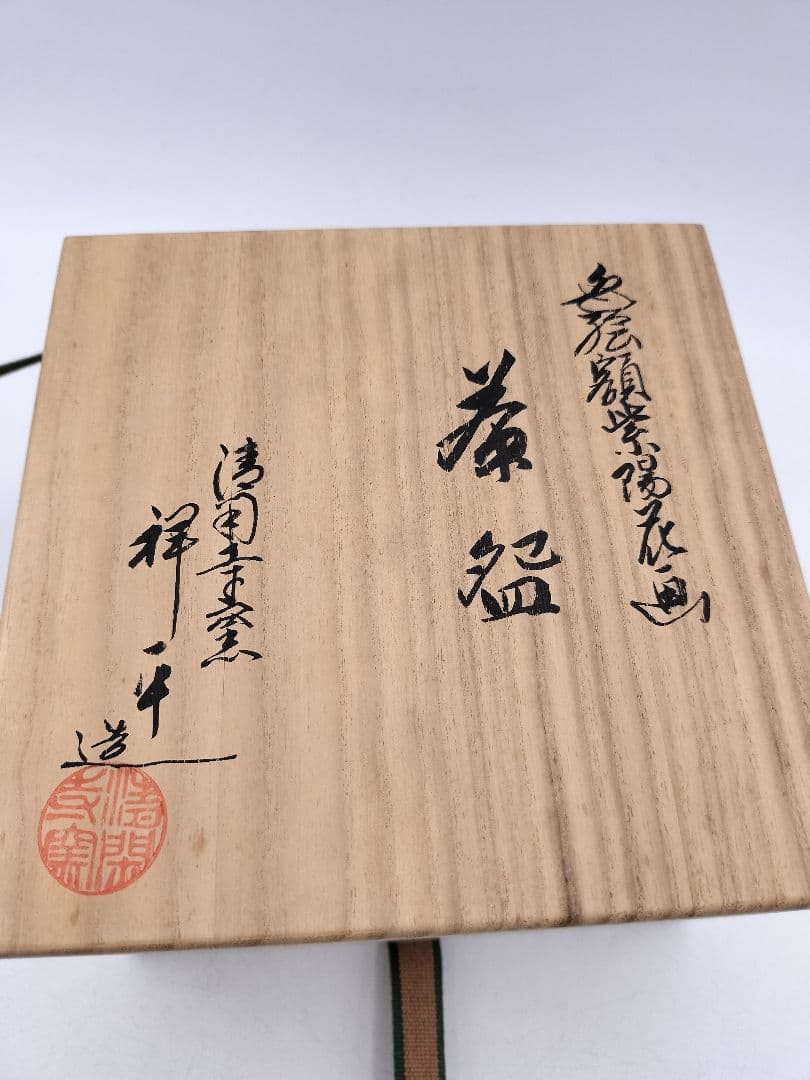 色絵額紫陽花画
茶盌
清閑寺窯
祥平造
清閑寺窯